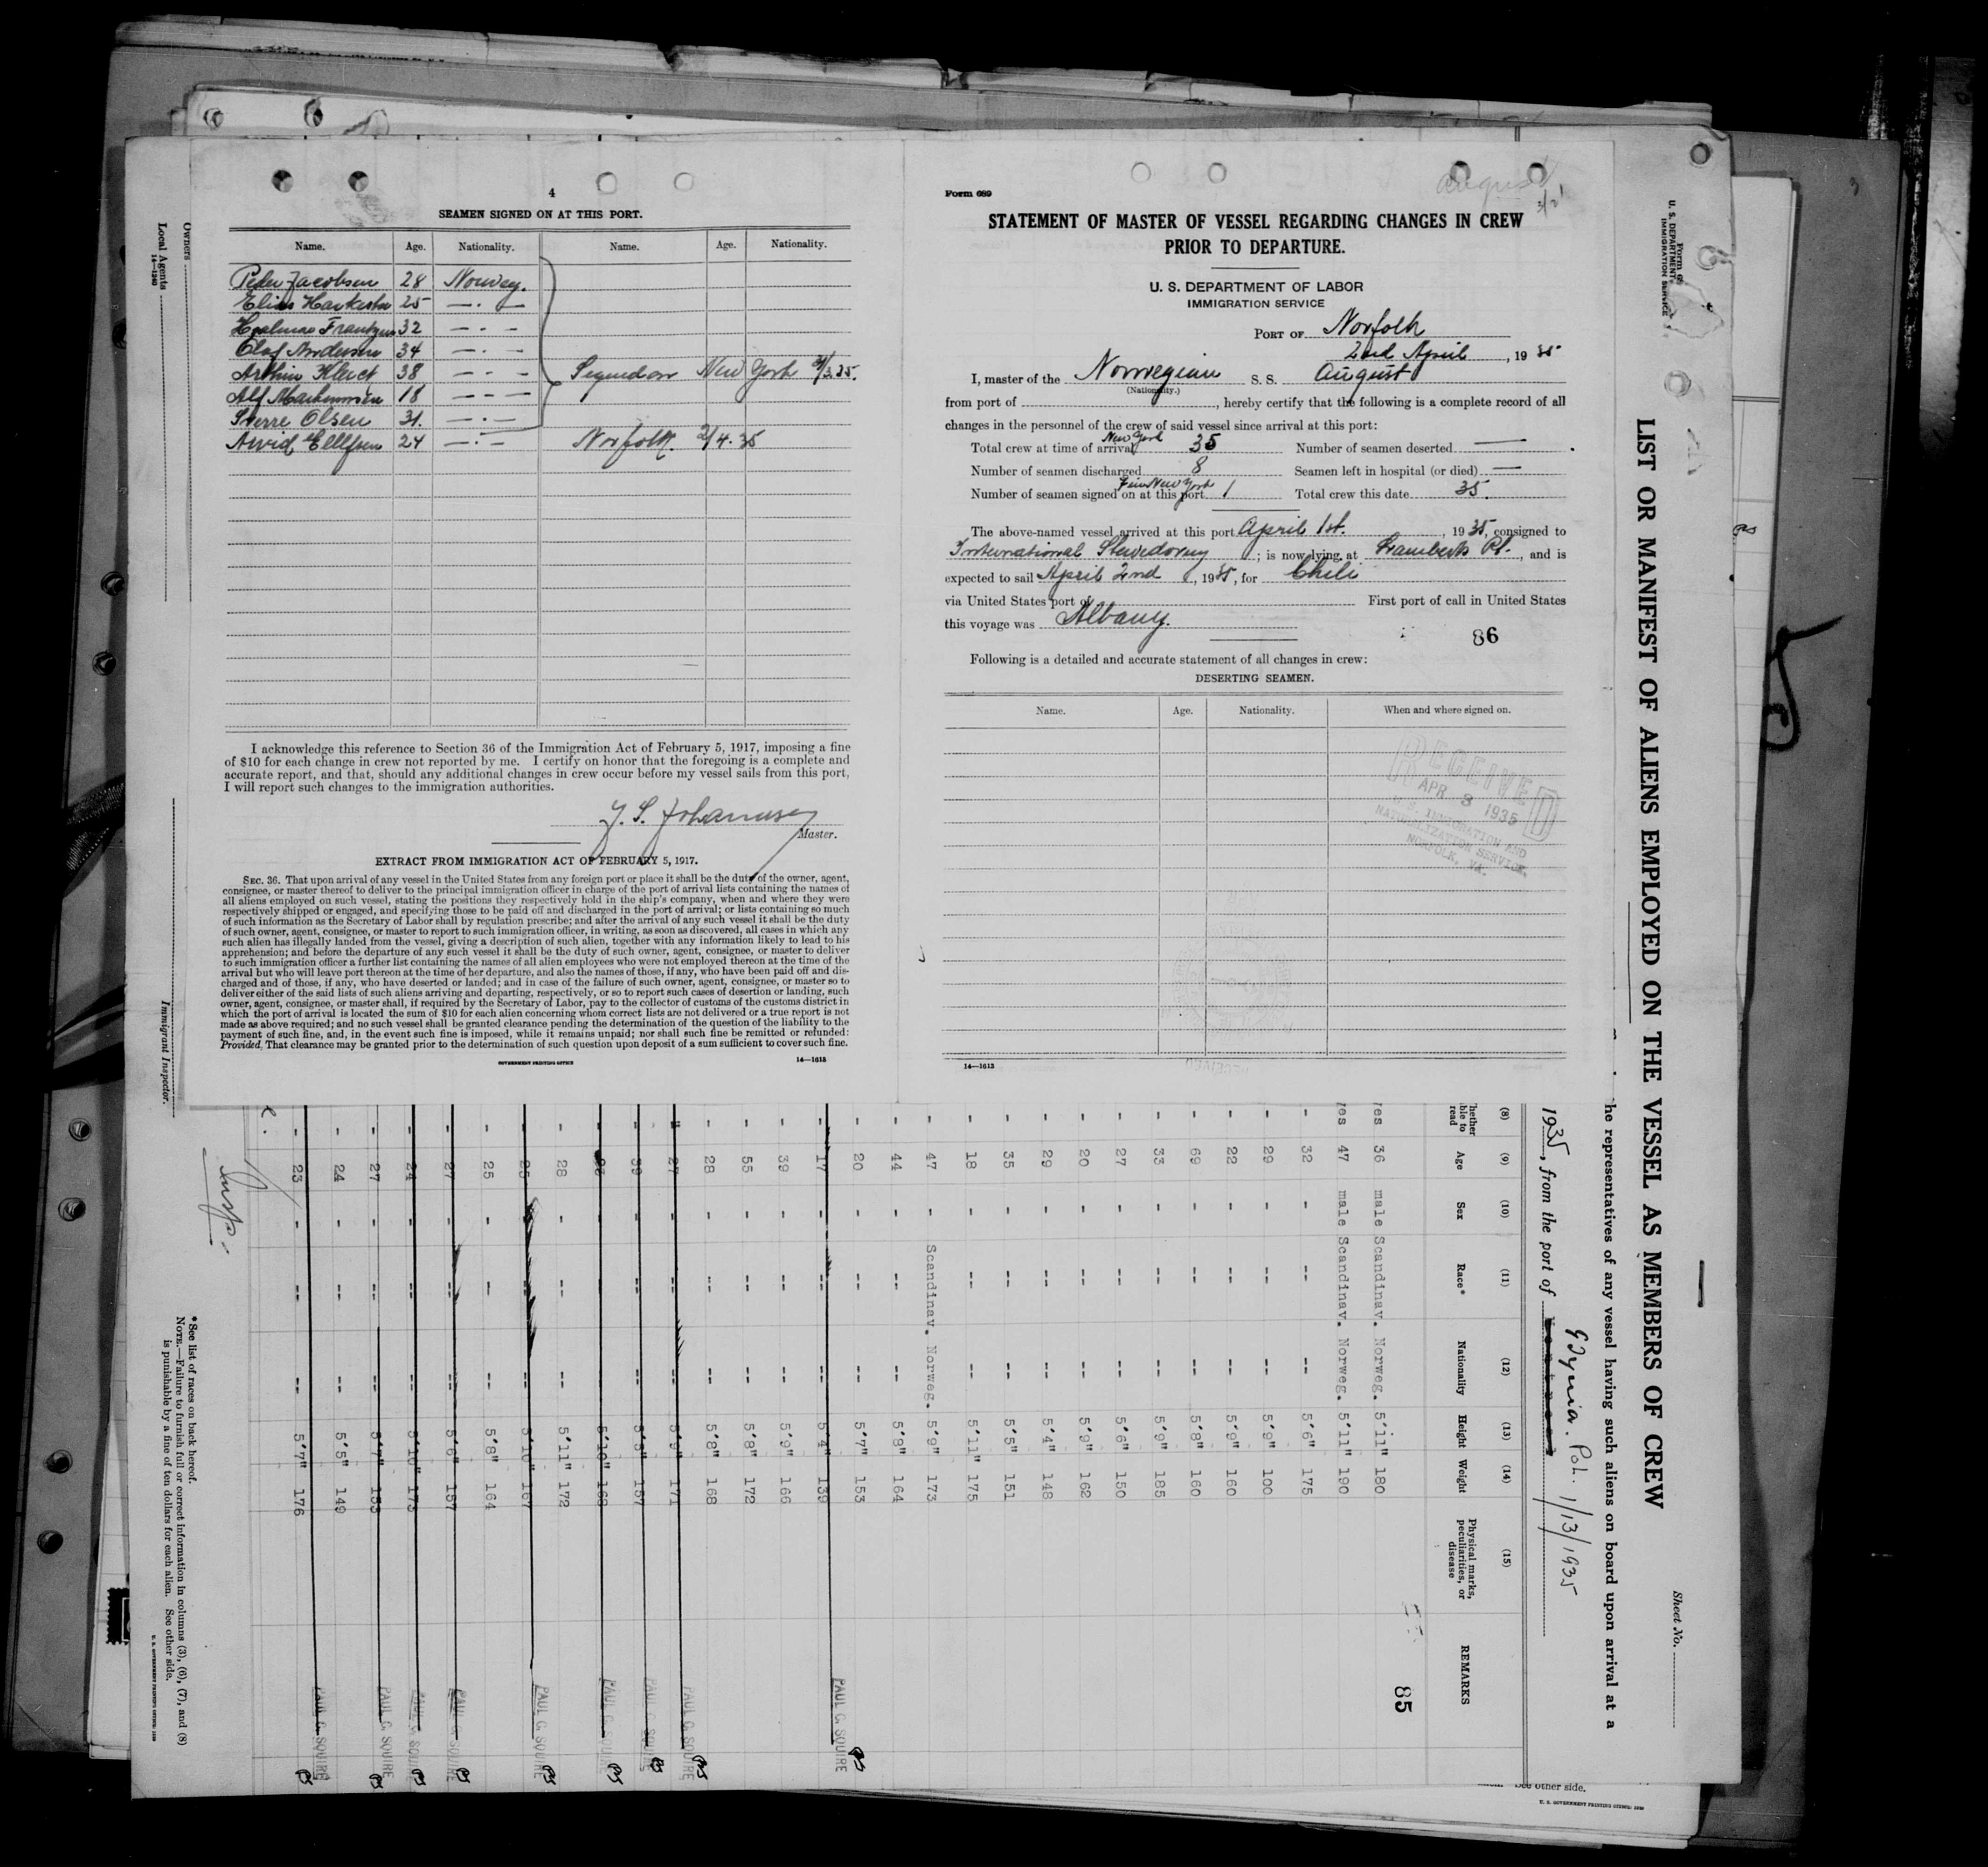 4
SEAMEN SIGNED ON AT THIS PORT.
Name. Age. Nationality. Name. Age. Nationality.
Peder Jacobsen 28 Norway.
Elias 25 — . —
Hjalmar 32 — . —
Olaf Andersen 34 — . —
Arthur 38 — . — Signed on New York
Alf 18 — - —
Sverre Olsen 31. — . —
Arvid Ellefsen 24 — . — Norfolk. 2/4.35
I acknowledge this reference to Section 36 of the Immigration Act of February 5, 1917, imposing a fine
of $10 for each change in crew not reported by me. I certify on honor that the foregoing is a complete and
accurate report, and that, should any additional changes in crew occur before my vessel sails from this port,
I will report such changes to the immigration authorities.
Johannsen
Master.
EXTRACT FROM IMMIGRATION ACT OF FEBRUARY 5, 1917.
SEC. 36. That upon arrival of any vessel in the United States from any foreign port or place it shall be the duty of the owner, agent,
consignee, or master thereof to deliver to the principal immigration officer in charge of the port of arrival lists containing the names of
all aliens employed on such vessel, stating the positions they respectively hold in the ship's company, when and where they were
respectively shipped or engaged, and specifying those to be paid off and discharged in the port of arrival; or lists containing so much
of such information as the Secretary of Labor shall by regulation prescribe; and after the arrival of any such vessel it shall be the duty
of such owner, agent, consignee, or master to report to such immigration officer, in writing, as soon as discovered, all cases in which any
such alien has illegally landed from the vessel, giving a description of such alien, together with any information likely to lead to his
apprehension; and before the departure of any such vessel it shall be the duty of such owner, agent, consignee, or master to deliver
to such immigration officer a further list containing the names of all alien employees who were not employed thereon at the time of the
arrival but who will leave port thereon at the time of her departure, and also the names of those, if any, who have been paid off and dis-
charged and of those, if any, who have deserted or landed; and in case of the failure of such owner, agent, consignee, or master so to
deliver either of the said lists of such aliens arriving and departing, respectively, or so to report such cases of desertion or landing, such
owner, agent, consignee, or master shall, if required by the Secretary of Labor, pay to the collector of customs of the customs district in
which the port of arrival is located the sum of $10 for each alien concerning whom correct lists are not delivered or a true report is not
made as above required; and no such vessel shall be granted clearance pending the determination of the question of the liability to the
payment of such fine, and, in the event such fine is imposed, while it remains unpaid; nor shall such fine be remitted or refunded:
Provided, That clearance may be granted prior to the determination of such question upon deposit of a sum sufficient to cover such fine.
GOVERNMENT PRINTING OFFICE 14—1613
Form 689
August
STATEMENT OF MASTER OF VESSEL REGARDING CHANGES IN CREW
PRIOR TO DEPARTURE.
U. S. DEPARTMENT OF LABOR
IMMIGRATION SERVICE
PORT OF Norfolk
2nd April, 1935
I, master of the Norwegian S. S. August
(Nationality.)
from port of , hereby certify that the following is a complete record of all
changes in the personnel of the crew of said vessel since arrival at this port:
New York
Total crew at time of arrival 35 Number of seamen deserted —
Number of seamen discharged 8 Seamen left in hospital (or died) —
New York
Number of seamen signed on at this port 1 Total crew this date 35.
The above-named vessel arrived at this port April 1st., 1935, consigned to
International Stevedoring; is now lying at Lamberts Pt., and is
expected to sail April 2nd, 1935, for Chili
via United States port of First port of call in United States
this voyage was Albany.
86
Following is a detailed and accurate statement of all changes in crew:
DESERTING SEAMEN.
Name. Age. Nationality. When and where signed on.
RECEIVED
APR 3 1935
U.S. IMMIGRATION AND
NATURALIZATION SERVICE,
NORFOLK, VA.
14—1613
Owners
Local Agents
14—1240
Immigrant Inspector.
Insp.
U. S. DEPARTMENT
IMMIGRATION SERVICE
LIST OR MANIFEST OF ALIENS EMPLOYED ON THE VESSEL AS MEMBERS OF CREW
Sheet No.
he representatives of any vessel having such aliens on board upon arrival at a
1935, from the port of Gdynia. Pol. 1/13/1935
(8) (9) (10) (11) (12) (13) (14) (15)
hether ble to read Age Sex Race* Nationality Height Weight Physical marks, peculiarities, or disease REMARKS
85
yes 36 male Scandinav. Norweg. 5'11" 180
yes 47 male Scandinav. Norweg. 5'11" 190
- 32 - -- -- 5'6" 175
- 29 - -- -- 5'9" 100
- 22 - -- -- 5'9" 160
- 69 - -- -- 5'8" 160
- 33 - -- -- 5'9" 185
- 27 - -- -- 5'6" 150
- 20 - -- -- 5'9" 162
- 29 - -- -- 5'4" 148
- 35 - -- -- 5'5" 151
- 18 - -- -- 5'11" 175
- 47 - Scandinav. Norweg. 5'9" 173
- 44 - -- -- 5'8" 164
- 20 - -- -- 5'7" 153
- 17 - -- -- 5'4" 139 PAUL G. SQUIRE
- 39 - -- -- 5'9" 166
- 55 - -- -- 5'8" 172
- 28 - -- -- 5'8" 168
- 27 - -- -- 5'9" 171 PAUL G. SQUIRE
- 39 - -- -- 157 PAUL G. SQUIRE
- - -- -- 5'10" PAUL G. SQUIRE
- 28 - -- -- 5'11" 172
- 25 - -- -- 5'10" 167 PAUL G. SQUIRE
- 25 - -- -- 5'8" 164
- 27 - -- -- 5'6" 157 PAUL G. SQUIRE
- 24 - -- -- 5'10" 173 PAUL G. SQUIRE
- 27 - -- -- 5'7" 153 PAUL G. SQUIRE
- 24 - -- -- 5'5" 149
- 23 - -- -- 5'7" 176 PAUL G. SQUIRE
*See list of races on back hereof.
NOTE.—Failure to furnish full or correct information in columns (3), (6), (7), and (8)
is punishable by a fine of ten dollars for each alien. See other side.
See other side.
U. S. GOVERNMENT PRINTING OFFICE